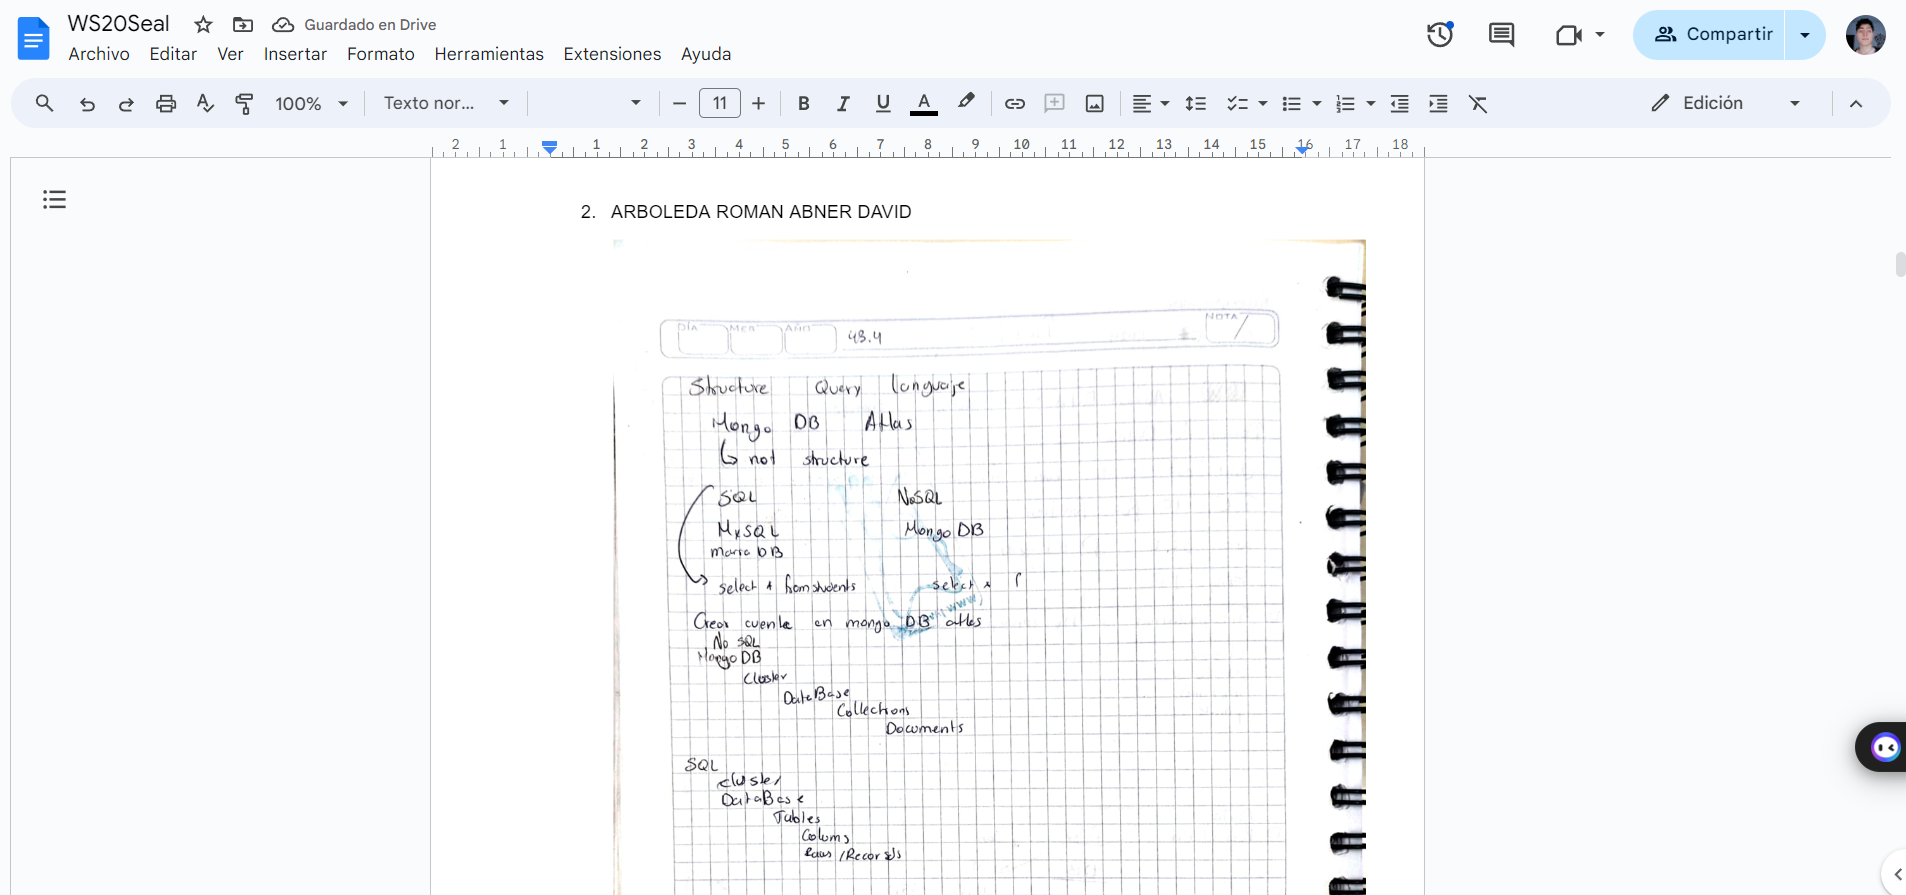 WS20Seal
Guardado en Drive
Archivo Editar Ver Insertar Formato Herramientas Extensiones Ayuda
Compartir
100% Texto nor... 11 Edición
2 1 1 2 3 4 5 6 7 8 9 10 11 12 13 14 15 16 17 18
2. ARBOLEDA ROMAN ABNER DAVID
DÍA MES AÑO 43.4 NOTA
Structure Query languaje
Mongo DB Atlas
not structure
SQL NoSQL
MySQL Mongo DB
maria DB
select * from students select *
Crear cuenta en mongo DB atlas
No SQL
Mongo DB
Cluster
DataBase
Collections
Documents
SQL
cluster
DataBase
Tables
Colums
Rows / Records